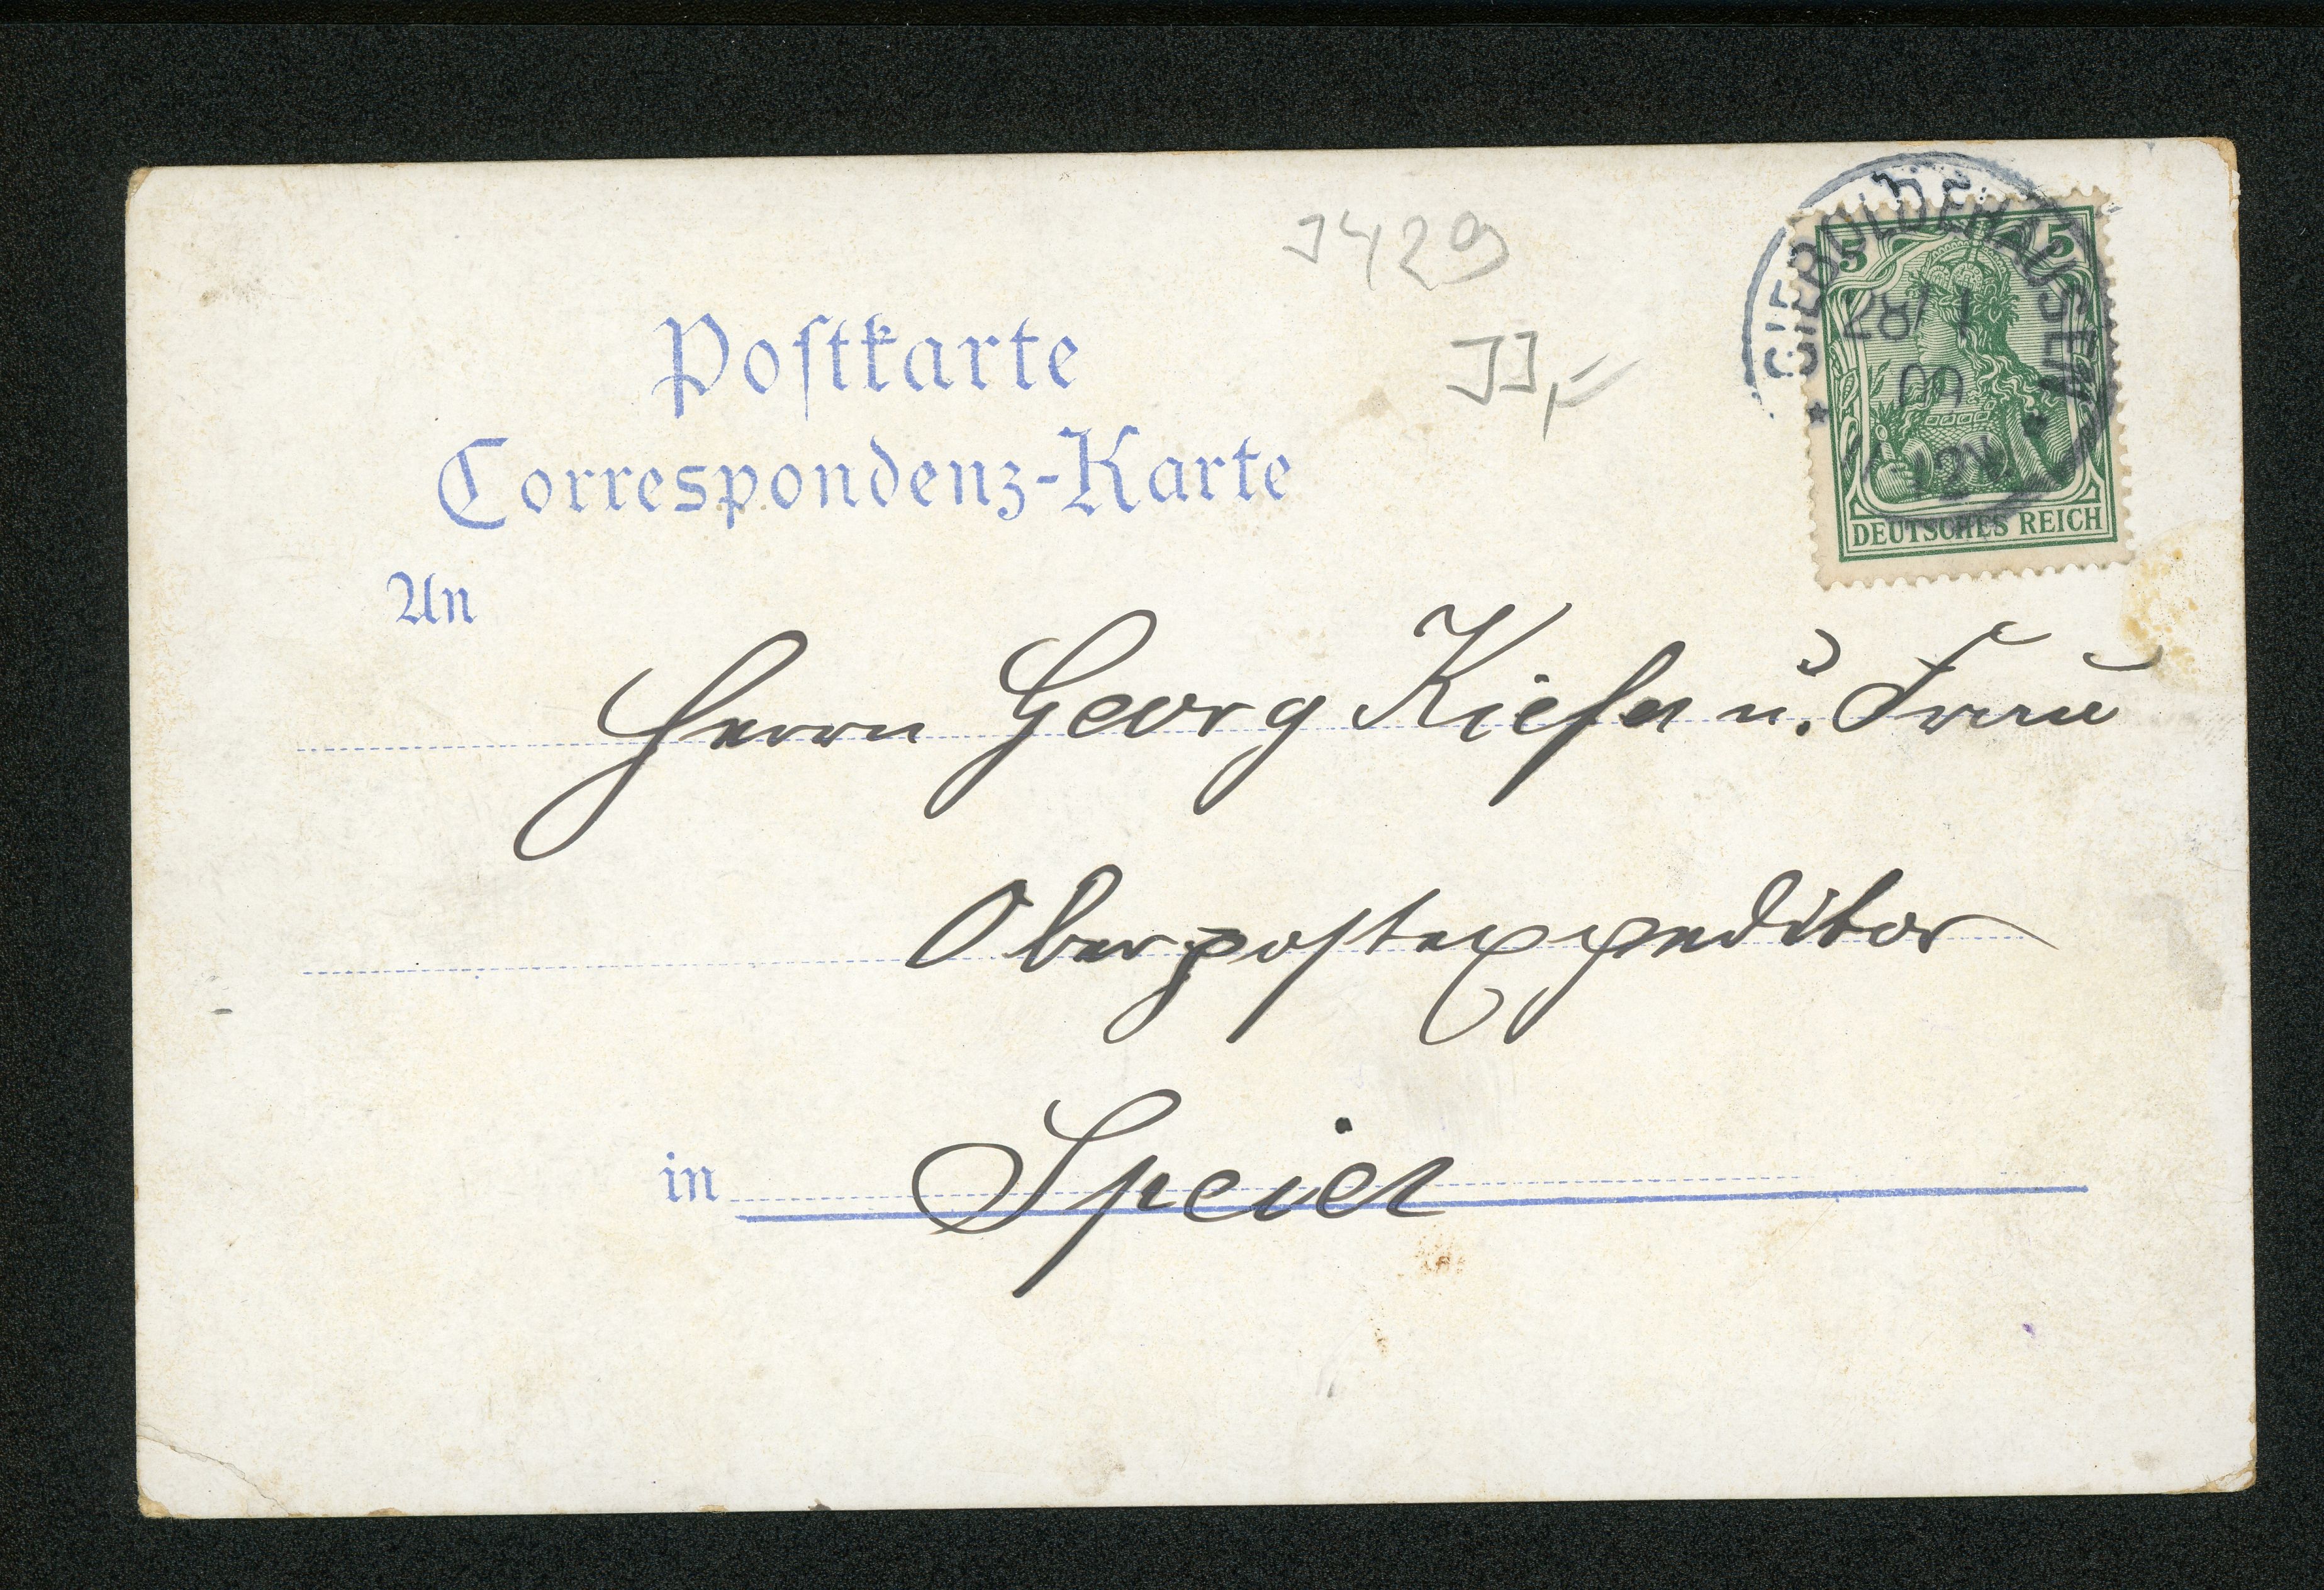 J429
Postkarte
Correspondenz-Karte
GIEBOLDEHAUSEN
28/1
12N
5 5
DEUTSCHES REICH
An
Herrn Georg Kiefer u. Frau
Oberpostexpeditor
in Speier